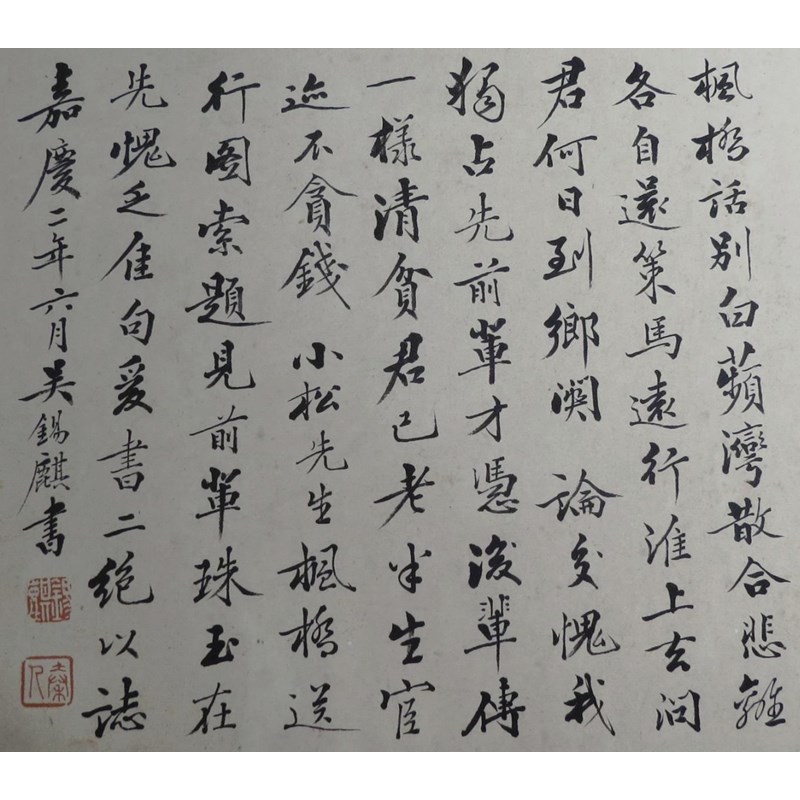 楓橋話別白蘋灣散合悲離
各自還策馬遠行淮上去問
君何日到鄉關 論交愧我
獨占先前輩才憑後輩傳
一樣清貧君已老半生宦
迹不貪錢 小松先生楓橋送
行圖索題見前輩珠玉在
先愧乏佳句爰書二絕以誌
嘉慶二年六月吳錫麒書